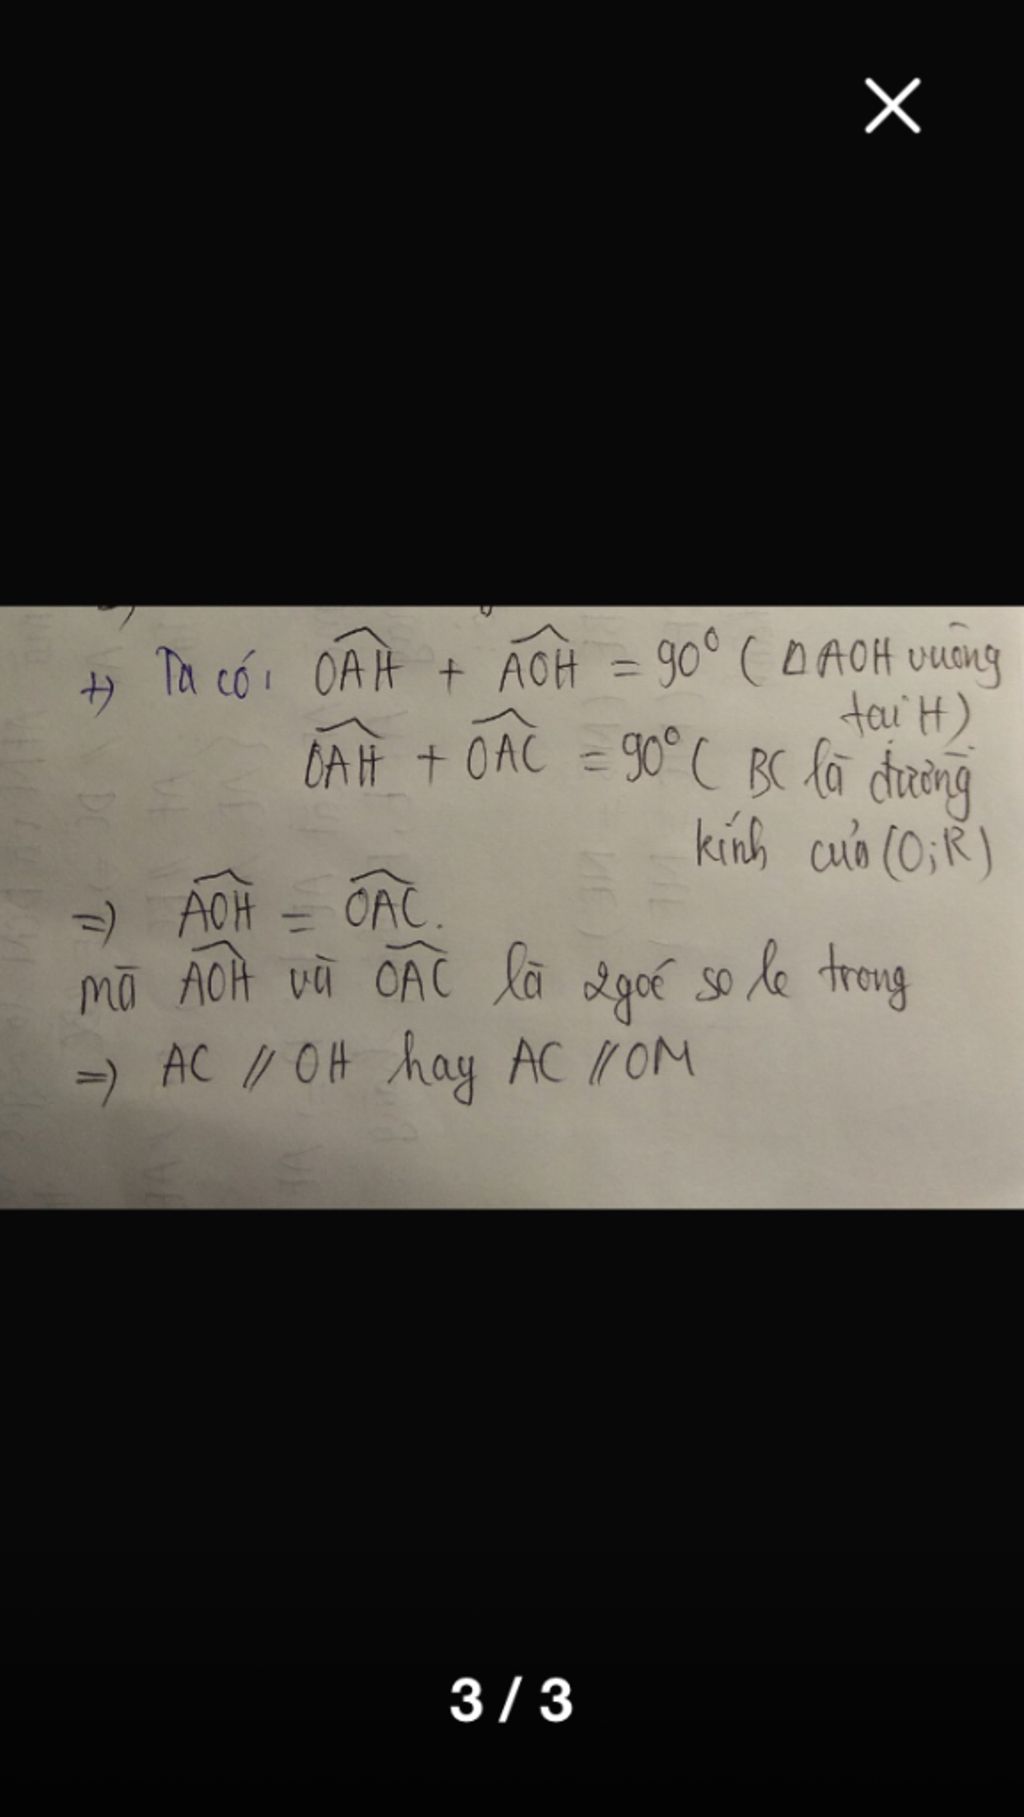 +) Ta có: OAH + AOH = 90° ( Δ AOH vuông
tại H)
OAH + OAC = 90° ( BC là đường
kính của (O;R)
=) AOH = OAC.
mà AOH và OAC là 2 goć so le trong
=) AC // OH hay AC // OM
3 / 3